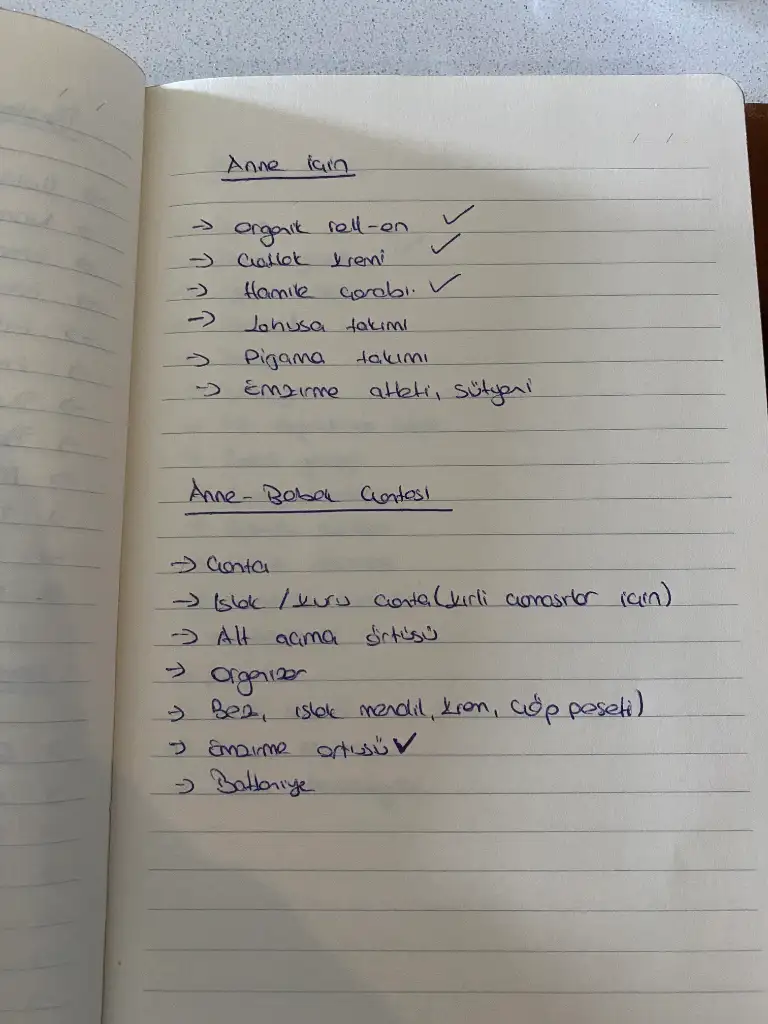 Anne için
→ organik roll-on ✓
→ Çatlak kremi ✓
→ Hamile çorabı. ✓
→ Lohusa takımı
→ Pijama takımı
→ Emzirme atleti, sütyeni
Anne - Bebek Çantası
→ Çanta
→ Islak / kuru çanta (kirli çamaşırlar için)
→ Alt açma örtüsü
→ Organizer
→ Bez, ıslak mendil, krem, çöp poşeti)
→ Emzirme örtüsü ✓
→ Battaniye